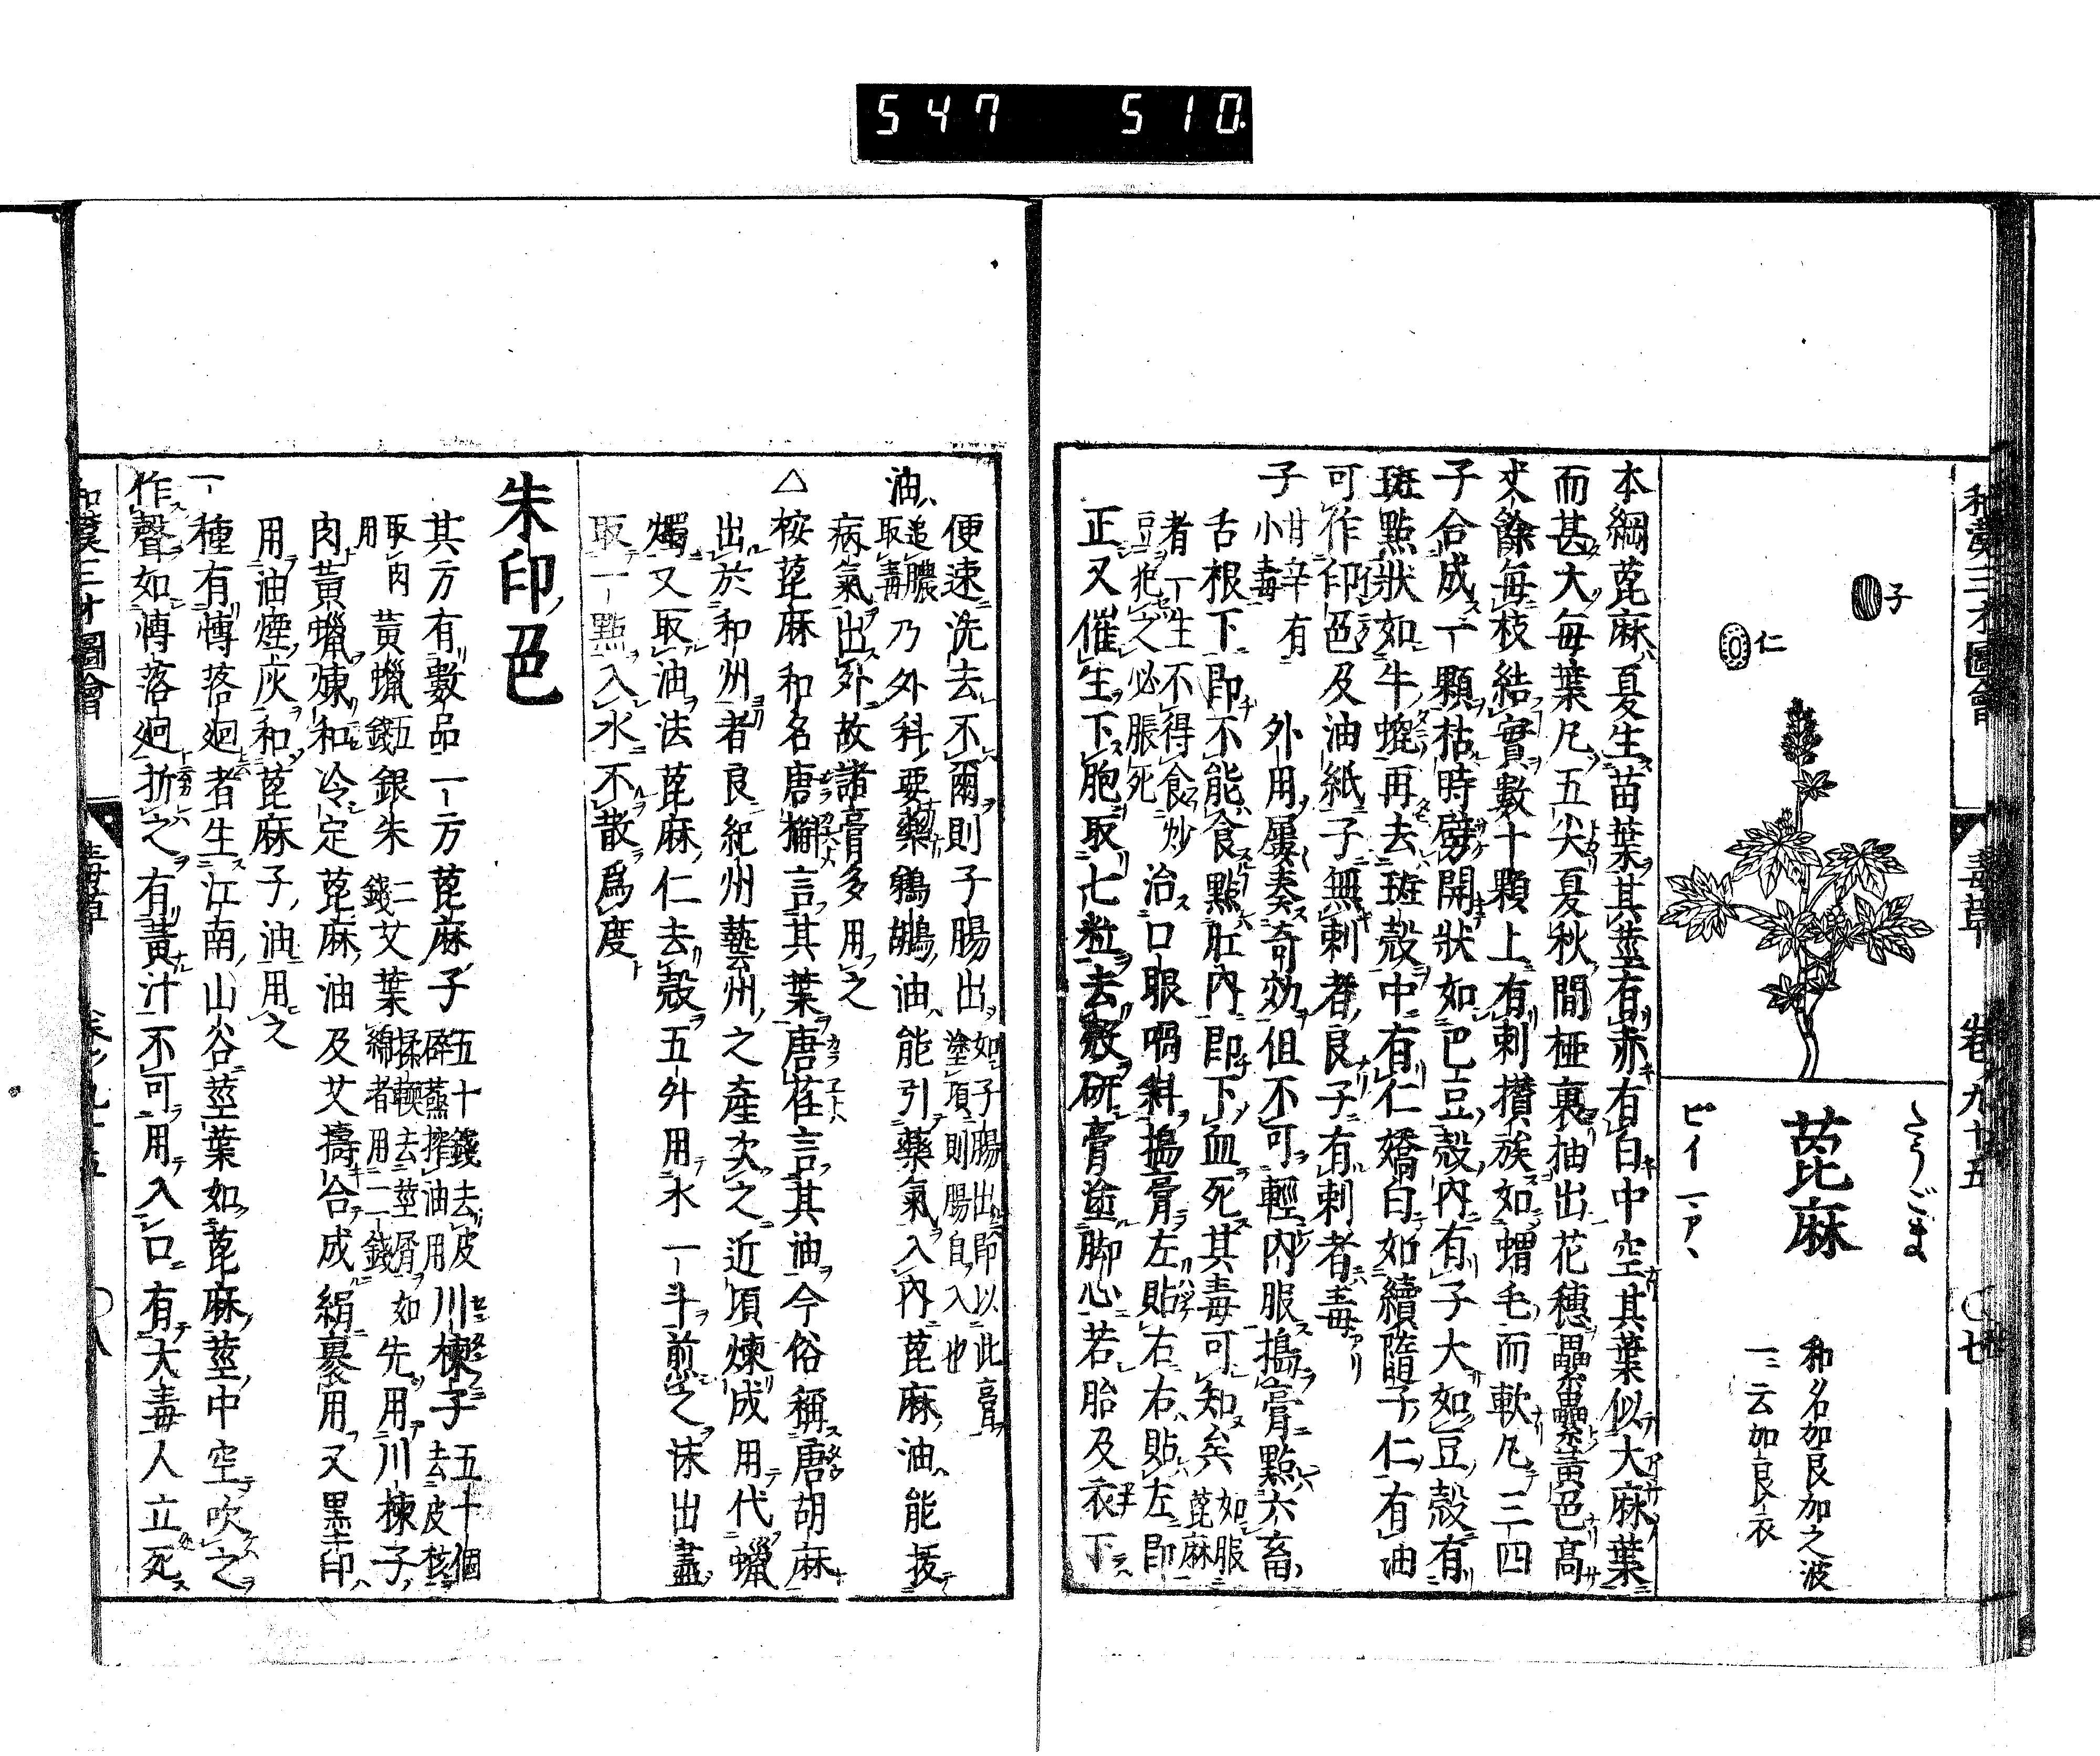 547 510
和漢三才圖會 毒草 卷ノ九十五 〇七
子
仁
たうごま
萞麻
ピイ マア
和名加良加之波
一云加良衣
本綱萞麻夏生苗葉其莖有赤有白中空其葉似大麻葉
而甚大每葉凡五尖夏秋間椏裏抽出花穗纍纍黃色高
丈餘每枝結實數十顆上有刺攅族如蝟毛而軟凡三四
子合成一顆枯時劈開狀如巴豆殼內有子大如豆殼有
斑點狀如牛螕再去斑殼中有仁嬌白如續隨子仁有油
可作印色及油紙子無刺者良子有刺者毒
子 甘辛有小毒 外用屢奏奇効但不可輕內服搗膏點六畜
舌根下卽不能食點肛內卽下血死其毒可知矣 如服萞麻
者一生不得食炒豆犯之必脹死 治口眼喎斜搗膏左貼右右貼左卽
正又催生下胞取七粒去殼研膏塗脚心若胎及衣下
便速洗去不爾則子腸出 如子腸出卽以此膏塗頂則腸自入也
油 追膿取毒 乃外科要藥鵜鶘油能引藥氣入內萞麻油能拔
病氣出外故諸膏多用之
△桉萞麻和名唐獼言其葉唐荏言其油今俗稱唐胡麻
出於和州者良紀州藝州之產次之近頃煉成用代蠟
燭又取油法萞麻仁去殼五升用水一斗煎之沫出盡
取一點入水不散爲度
朱印色
其方有數品一方萞麻子 五十錢去皮碎蒸搾油用 川楝子 五十個去皮核
取肉用 黃蠟 五錢 銀朱 二錢 艾葉 揉輭去莖屑如綿者用一錢 先用川楝子
肉黃蠟煉和冷定萞麻油及艾擣合成絹裹用又墨印
用油煙灰和萞麻子油用之
一種有慱落廻者生江南山谷莖葉如萞麻莖中空吹之
作聲如慱落廻折之有黃汁不可用入口有大毒人立死
和漢三才圖會 毒草 卷ノ九十五 〇八